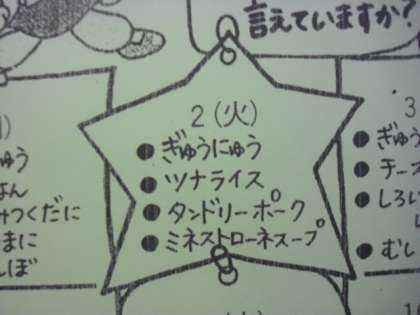 言えていますか?
2(火)
●ぎゅうにゅう
●ツナライス
●タンドリーポーク
●ミネストローネスープ
ゅう
はん
つくだに
まに
んぼ
3
●ぎゅ
●チーズ
●しろ
●むし